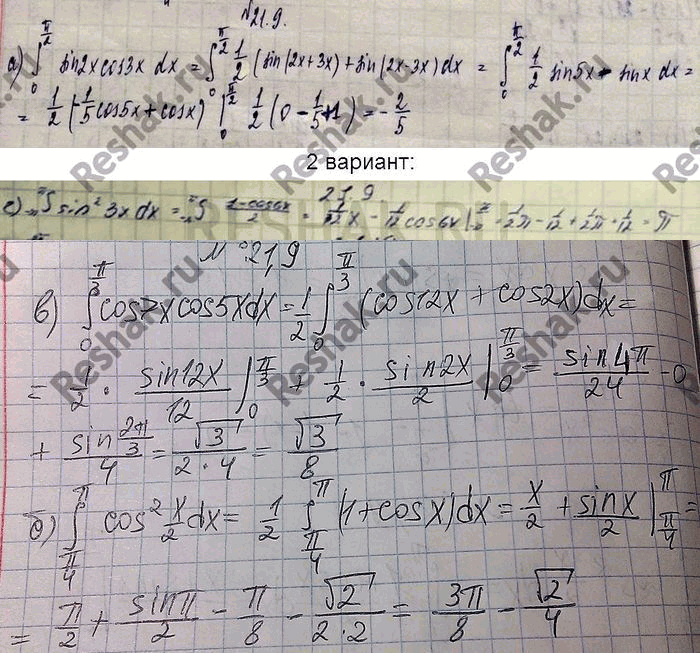 №21.9.
а) ∫₀^{π/2} sin2xcos3x dx = ∫₀^{π/2} 1/2 (sin(2x+3x)+sin(2x-3x))dx = ∫₀^{π/2} 1/2 sin5x - sinx dx =
= 1/2 (-1/5 cos5x+cosx) |₀^{π/2} 1/2 (0 - 1/5 + 1) = -2/5
2 вариант:
21.9
с) ∫ sin² 3x dx = ∫ (1-cos6x)/2 = 1/2 x - 1/12 cos6x | = 1/2 π - 1/12 + 1/2 π + 1/12 = π
№ 21,9
в) ∫₀^{π/3} cos7x cos5xdx = 1/2 ∫₀^{π/3} (cos12x + cos2x)dx =
= 1/2 · sin12x/12 |₀^{π/3} + 1/2 · sin2x/2 |₀^{π/3} = sin4π/24 - 0
+ sin(2π/3)/4 = √3/(2·4) = √3/8
б) ∫_{π/4}^{π} cos² x/2 dx = 1/2 ∫_{π/4}^{π} (1+cosx)dx = x/2 + sinx/2 |_{π/4}^{π} =
= π/2 + sinπ/2 - π/8 - √2/(2·2) = 3π/8 - √2/4
Reshak.ru